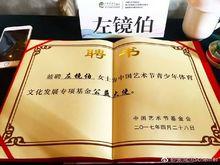 左镜伯
聘书
兹聘 左镜伯 女士为中国艺术节青少年体育
文化发展专项基金公益大使。
中国艺术节基金会
二〇一七年四月二十八日